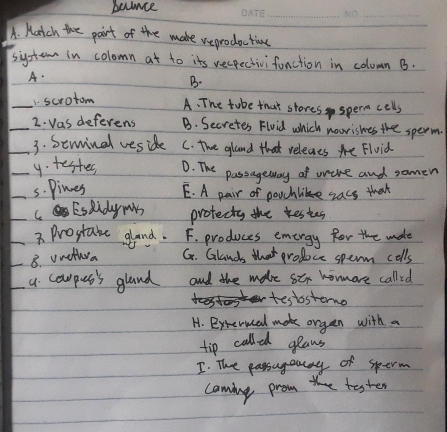 Science
DATE NO.
A. Match the part of the male reproductive
system in colomn at to its respectivi function in column B.
A.
B.
1. scrotum
A. The tube that stores sperm cells
2. vas deferens
B. Secretes Fluid which nourishes the sperm.
3. Seminal veside
C. The gland that releaes the Fluid
4. testes
D. The passageway of urene and semen
5. Pines
E. A pair of pouchlike sacs that
protects the testes
6 Esdidymis
7. Prostate gland.
F. produces emergy for the male
8. urethra
G. Glands that produce sperm cells
9. cowpers's gland
and the male sex hormore called
testosterno
H. External male organ with a
tip called glans
I. The passageway of sperm
coming prom the testes